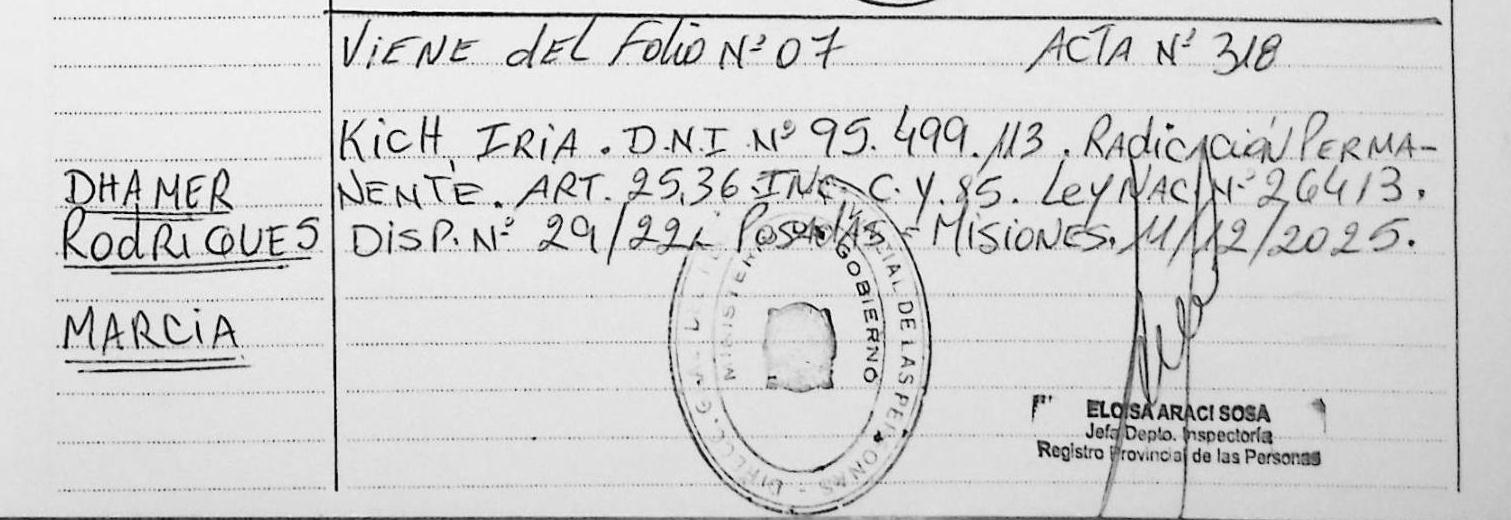 ViENE dEL Folio Nº 07 ACTA Nº 318
KicH, IRiA. D.N.I Nº 95.499.113. RAdicAcióN PERMA-
NENTE. ART. 25,36 INC. C. Y. 85. LeY NAC. Nº 26413.
DiSP. Nº 29/22. PosADAS - MiSiONES. 11/12/2025.
DHAMER
RodRiGUES
MARCiA
MINISTERIO GOBIERNO
DIRECC. GRAL. DE PROVINCIAL DE LAS PERSONAS
ELOISA ARACI SOSA
Jefa Depto. Inspectoría
Registro Provincial de las Personas